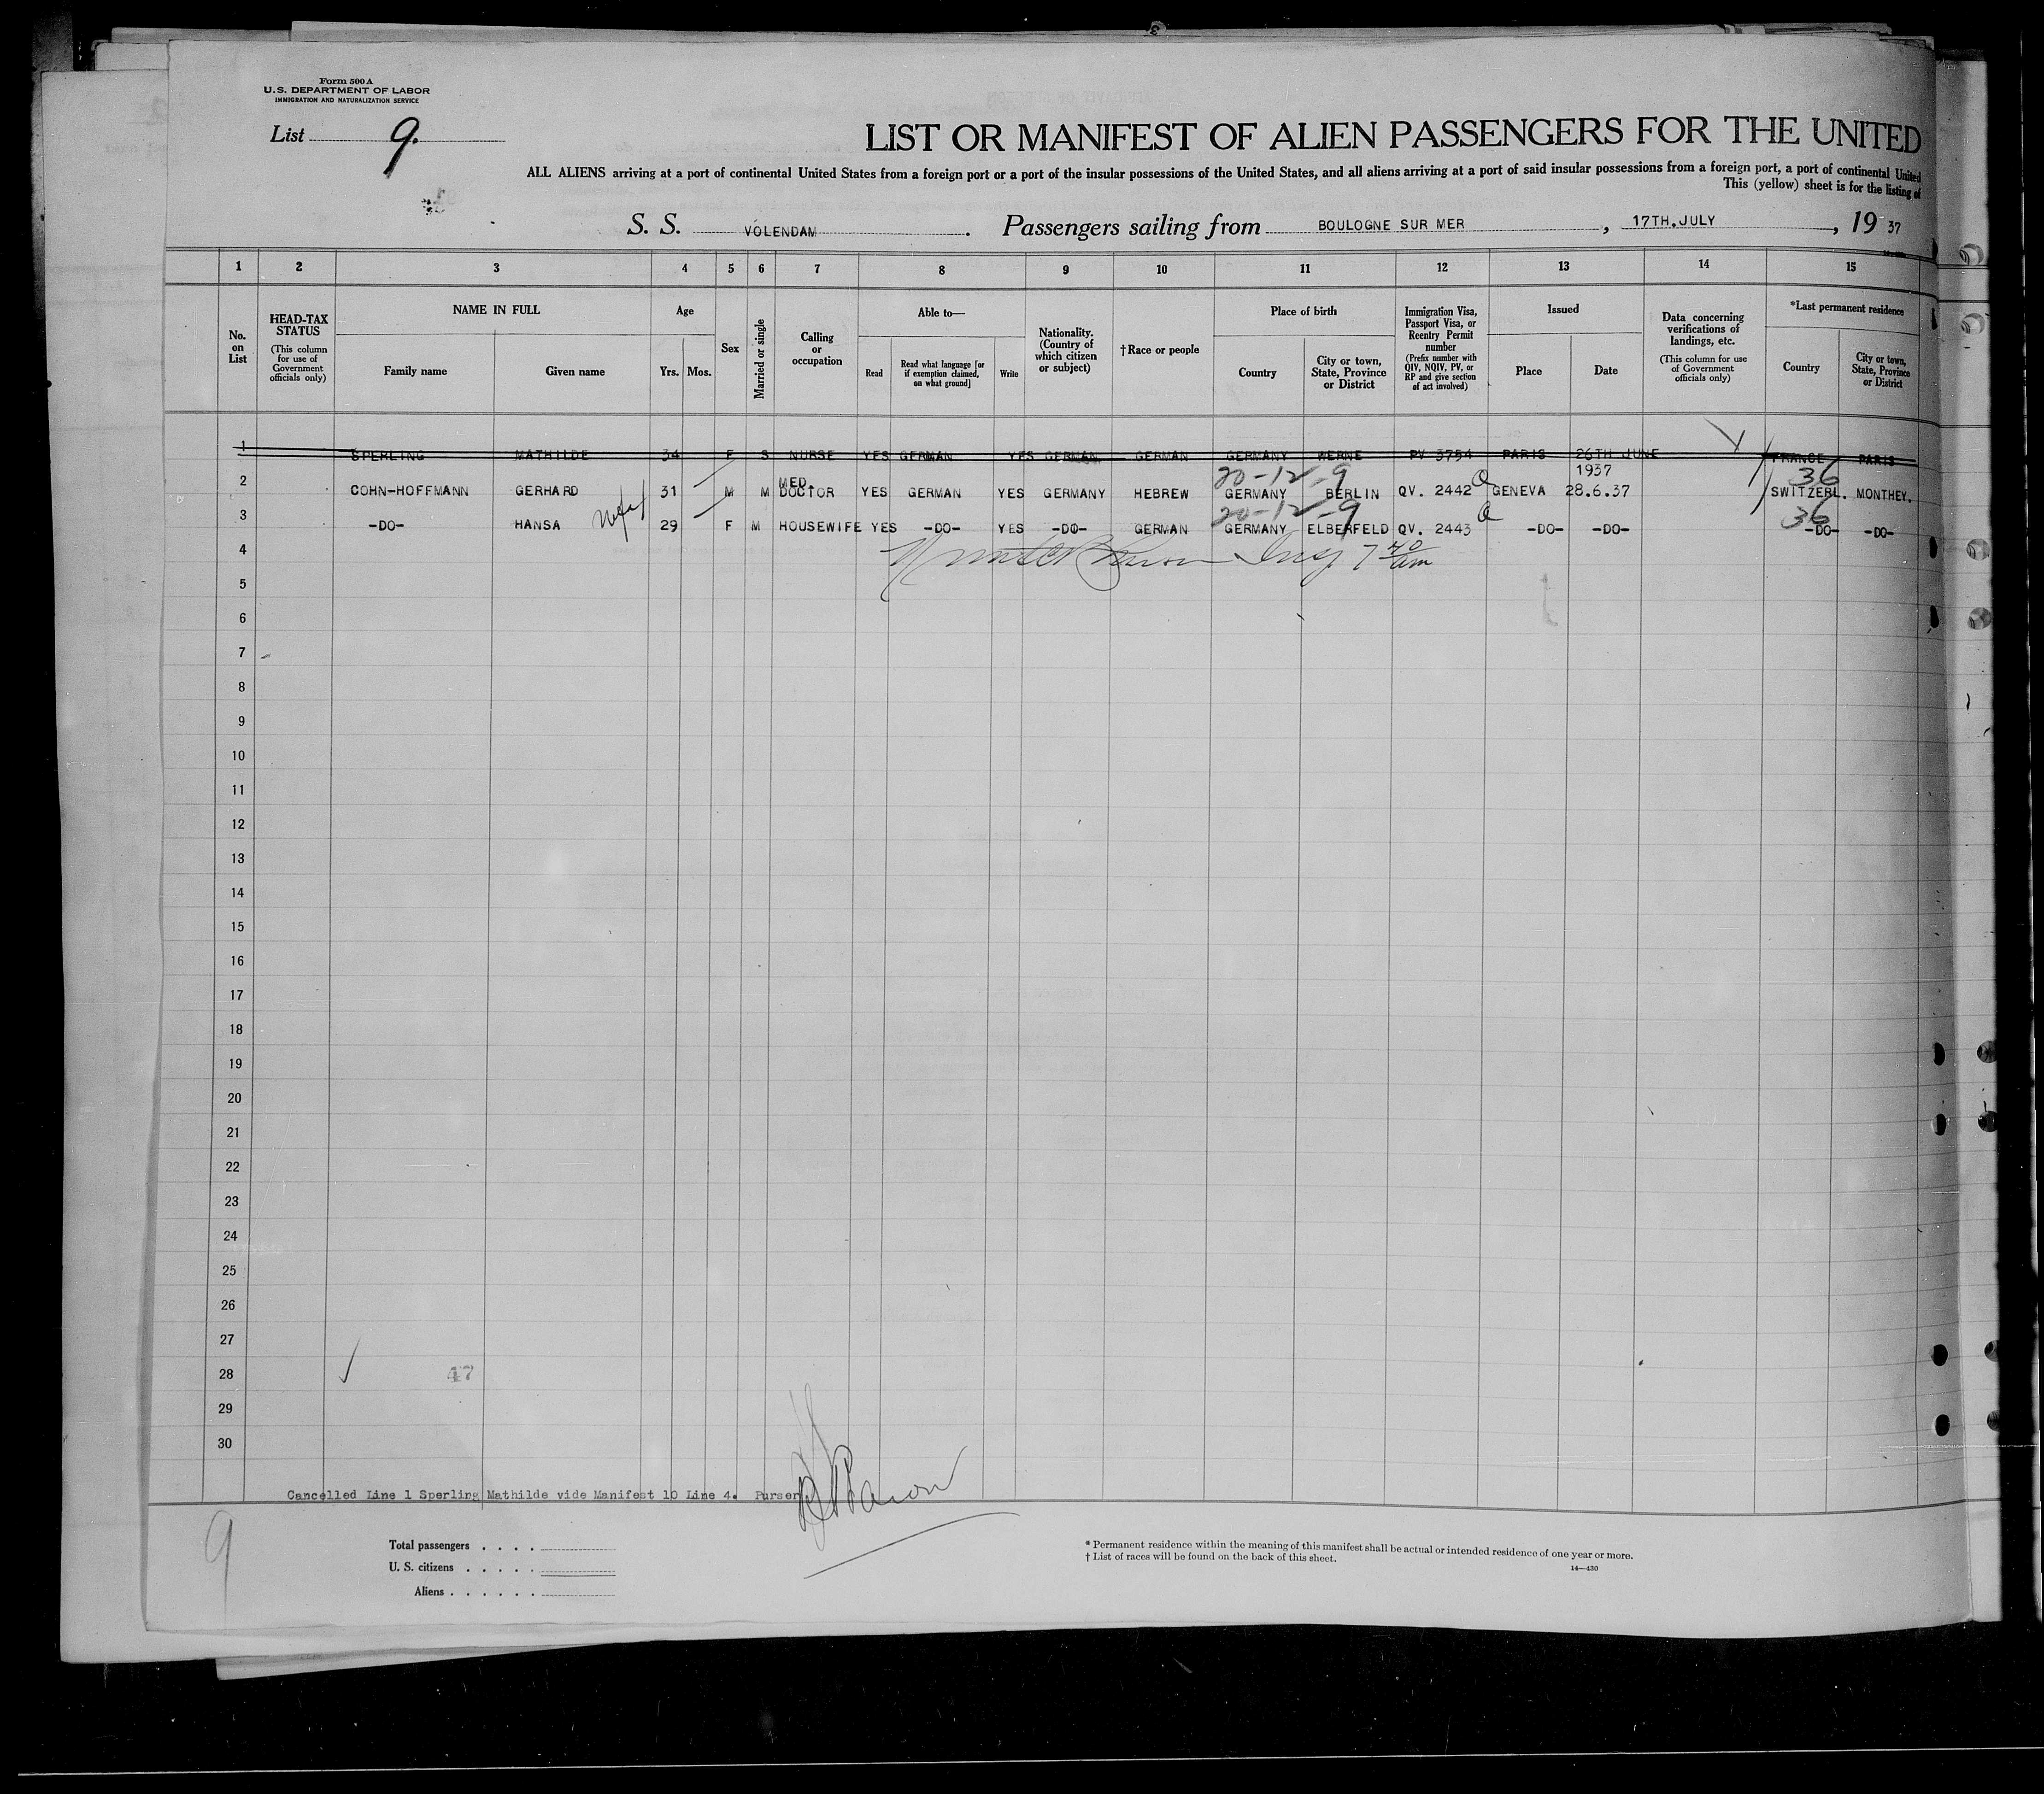 Form 500 A
U.S. DEPARTMENT OF LABOR
IMMIGRATION AND NATURALIZATION SERVICE
List 9.
LIST OR MANIFEST OF ALIEN PASSENGERS FOR THE UNITED
ALL ALIENS arriving at a port of continental United States from a foreign port or a port of the insular possessions of the United States, and all aliens arriving at a port of said insular possessions from a foreign port, a port of continental United
This (yellow) sheet is for the listing of
S. S. VOLENDAM. Passengers sailing from BOULOGNE SUR MER, 17TH.JULY, 19 37
1 2 3 4 5 6 7 8 9 10 11 12 13 14 15
No. on List
HEAD-TAX STATUS
(This column for use of Government officials only)
NAME IN FULL
Family name
Given name
Age
Yrs. Mos.
Sex
Married or single
Calling or occupation
Able to—
Read
Read what language [or if exemption claimed, on what ground]
Write
Nationality. (Country of which citizen or subject)
†Race or people
Place of birth
Country
City or town, State, Province or District
Immigration Visa, Passport Visa, or Reentry Permit number
(Prefix number with QIV, NQIV, PV, or RP and give section of act involved)
Issued
Place
Date
Data concerning verifications of landings, etc.
(This column for use of Government officials only)
*Last permanent residence
Country
City or town, State, Province or District
1 SPERLING MATHILDE 34 F S NURSE YES GERMAN YES GERMAN GERMAN GERMANY WERNE PV 3754 PARIS 26TH JUNE 1937 FRANCE PARIS
20-12-9 36
2 COHN-HOFFMANN GERHARD 31 M M MED. DOCTOR YES GERMAN YES GERMANY HEBREW GERMANY BERLIN QV. 2442 GENEVA 28.6.37 SWITZERL. MONTHEY.
20-12-9 36
3 -DO- HANSA wife 29 F M HOUSEWIFE YES -DO- YES -DO- GERMAN GERMANY ELBERFELD QV. 2443 -DO- -DO- -DO- -DO-
4
5
6
7
8
9
10
11
12
13
14
15
16
17
18
19
20
21
22
23
24
25
26
27
28 47
29
30
Cancelled Line 1 Sperling Mathilde vide Manifest 10 Line 4. Purser
9
Total passengers . . . .
U. S. citizens . . . . .
Aliens . . . . . .
* Permanent residence within the meaning of this manifest shall be actual or intended residence of one year or more.
† List of races will be found on the back of this sheet.
14—430